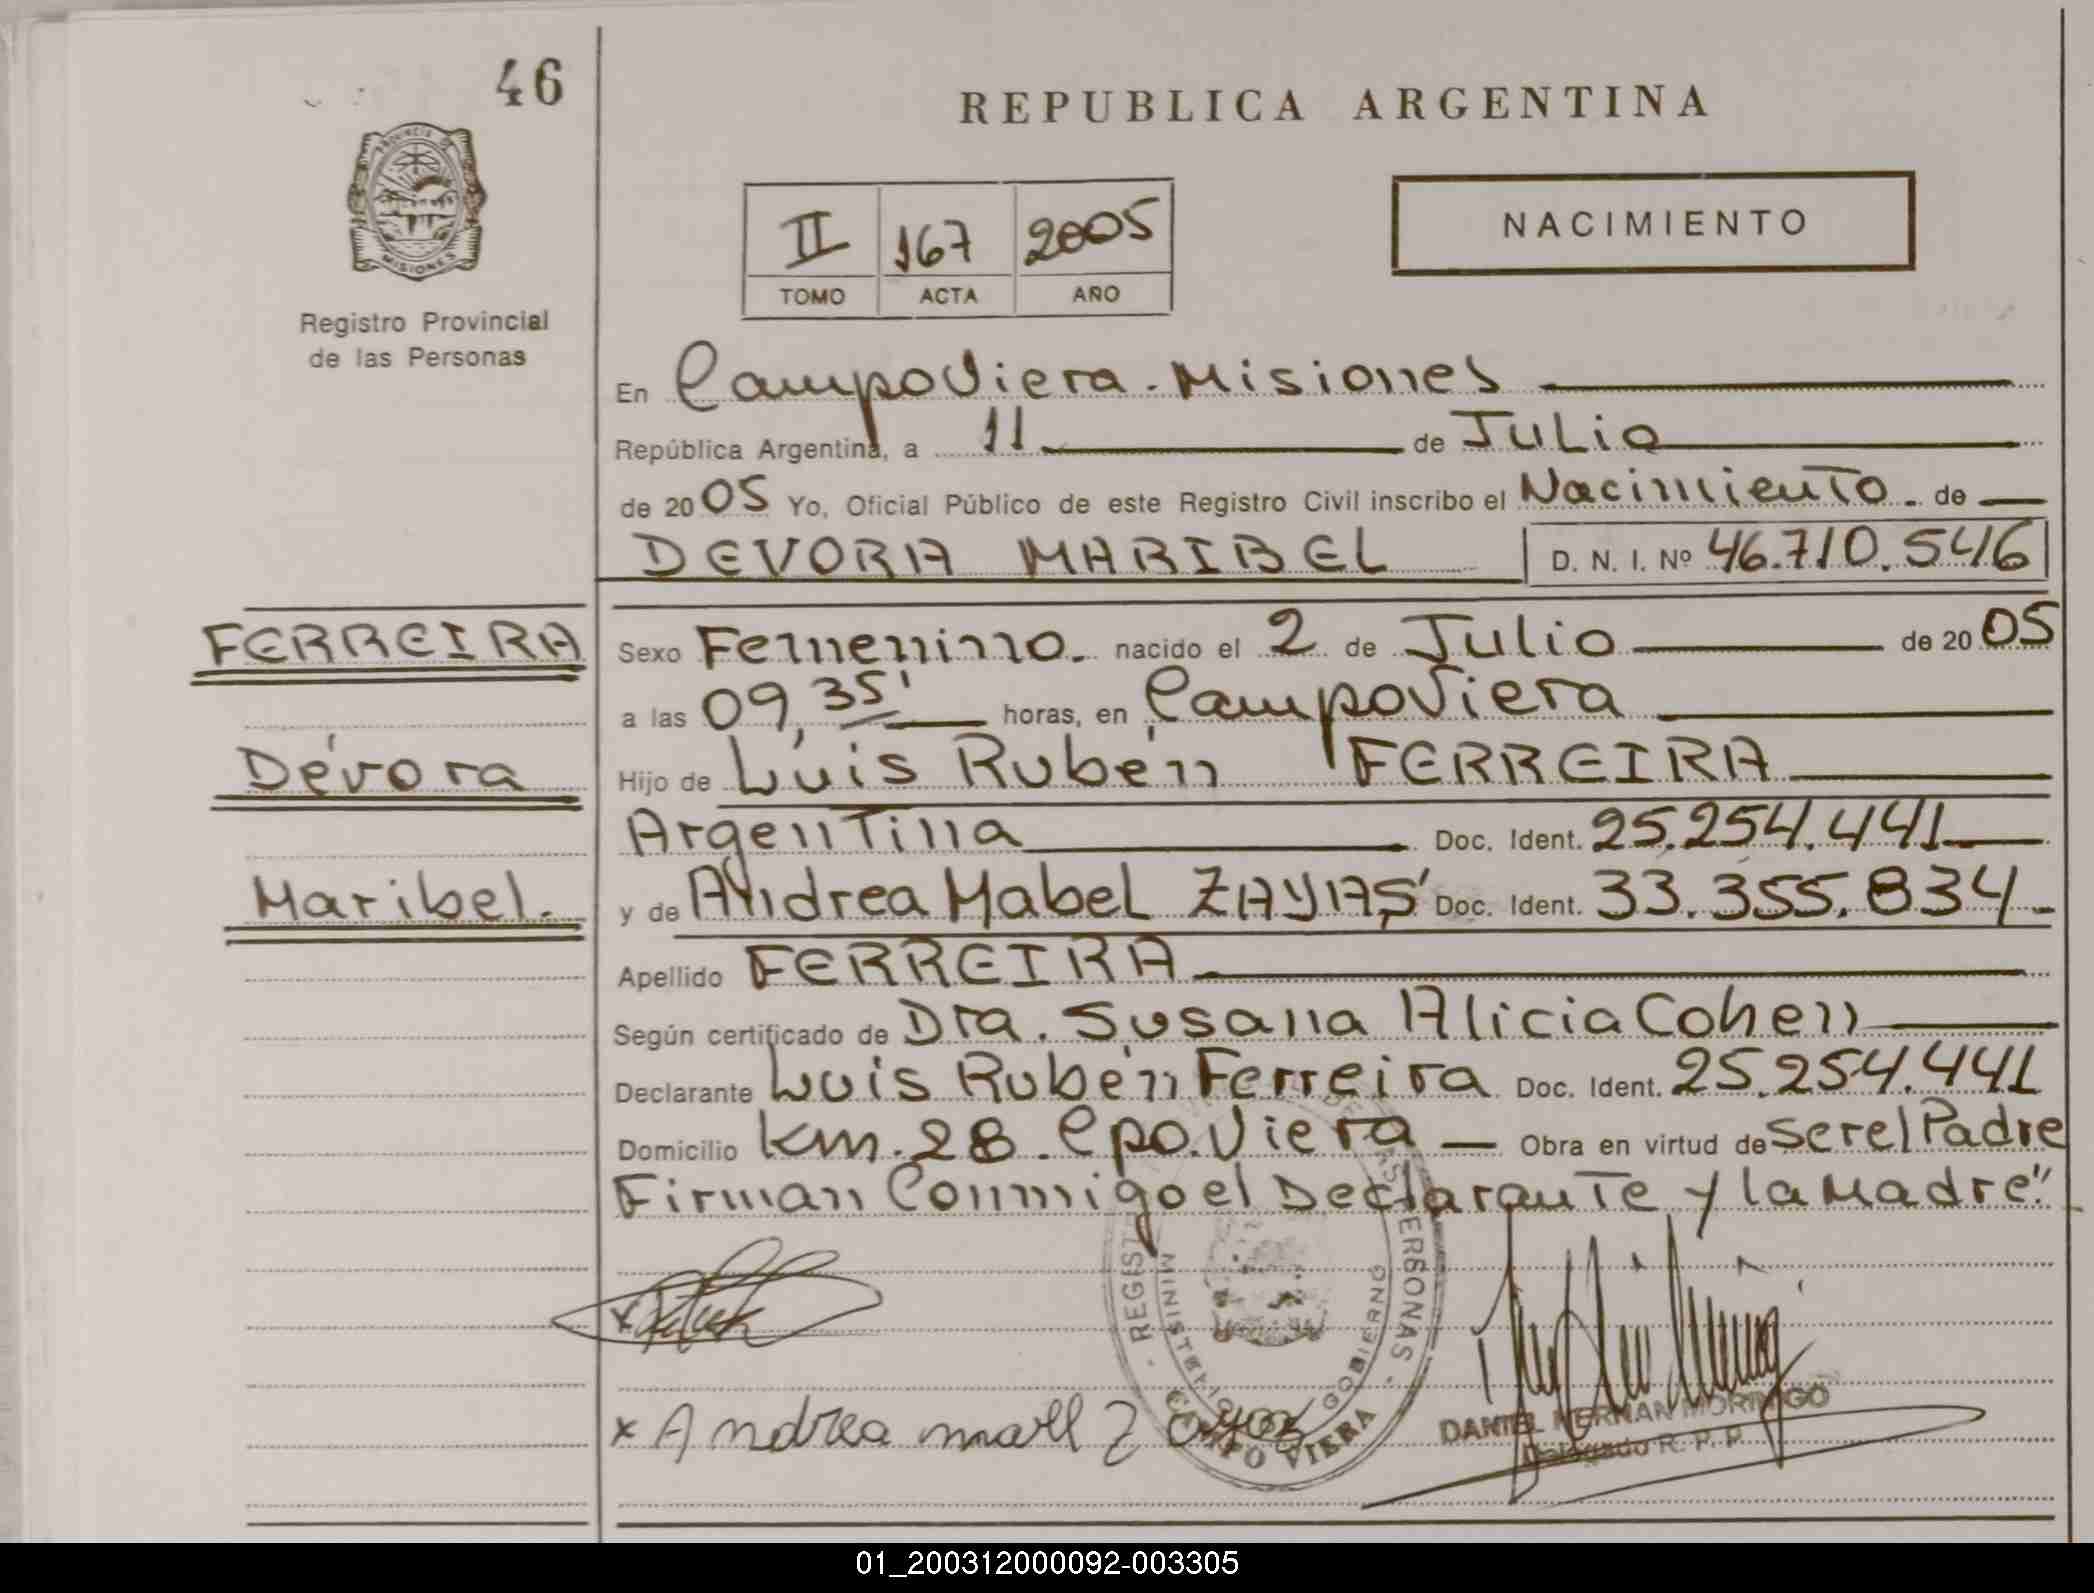 46
REPUBLICA ARGENTINA
PROVINCIA DE
MISIONES
Registro Provincial
de las Personas
II 167 2005
TOMO ACTA AÑO
NACIMIENTO
En Campo Viera - Misiones
República Argentina, a 11 de Julio
de 2005 Yo, Oficial Público de este Registro Civil inscribo el Nacimiento de
DEVORA MARIBEL D. N. I. Nº 46.710.546
FERREIRA
Dévora
Maribel.
Sexo Femenino. nacido el 2 de Julio de 2005
a las 09,35' horas, en Campo Viera
Hijo de Luis Rubén FERREIRA
Argentina Doc. Ident. 25.254.441
y de Andrea Mabel ZAYAS Doc. Ident. 33.355.834
Apellido FERREIRA
Según certificado de Dra. Susana Alicia Cohen
Declarante Luis Rubén Ferreira Doc. Ident. 25.254.441
Domicilio Km. 28. Cpo. Viera Obra en virtud de ser el Padre
Firman Conmigo el Declarante y la Madre"
REGIST PERSONAS
MINISTERIO GOBIERNO
CAMPO VIERA
x Andrea
DANIEL HERNAN MORINIGO
Delegado R. P. P.
01_200312000092-003305